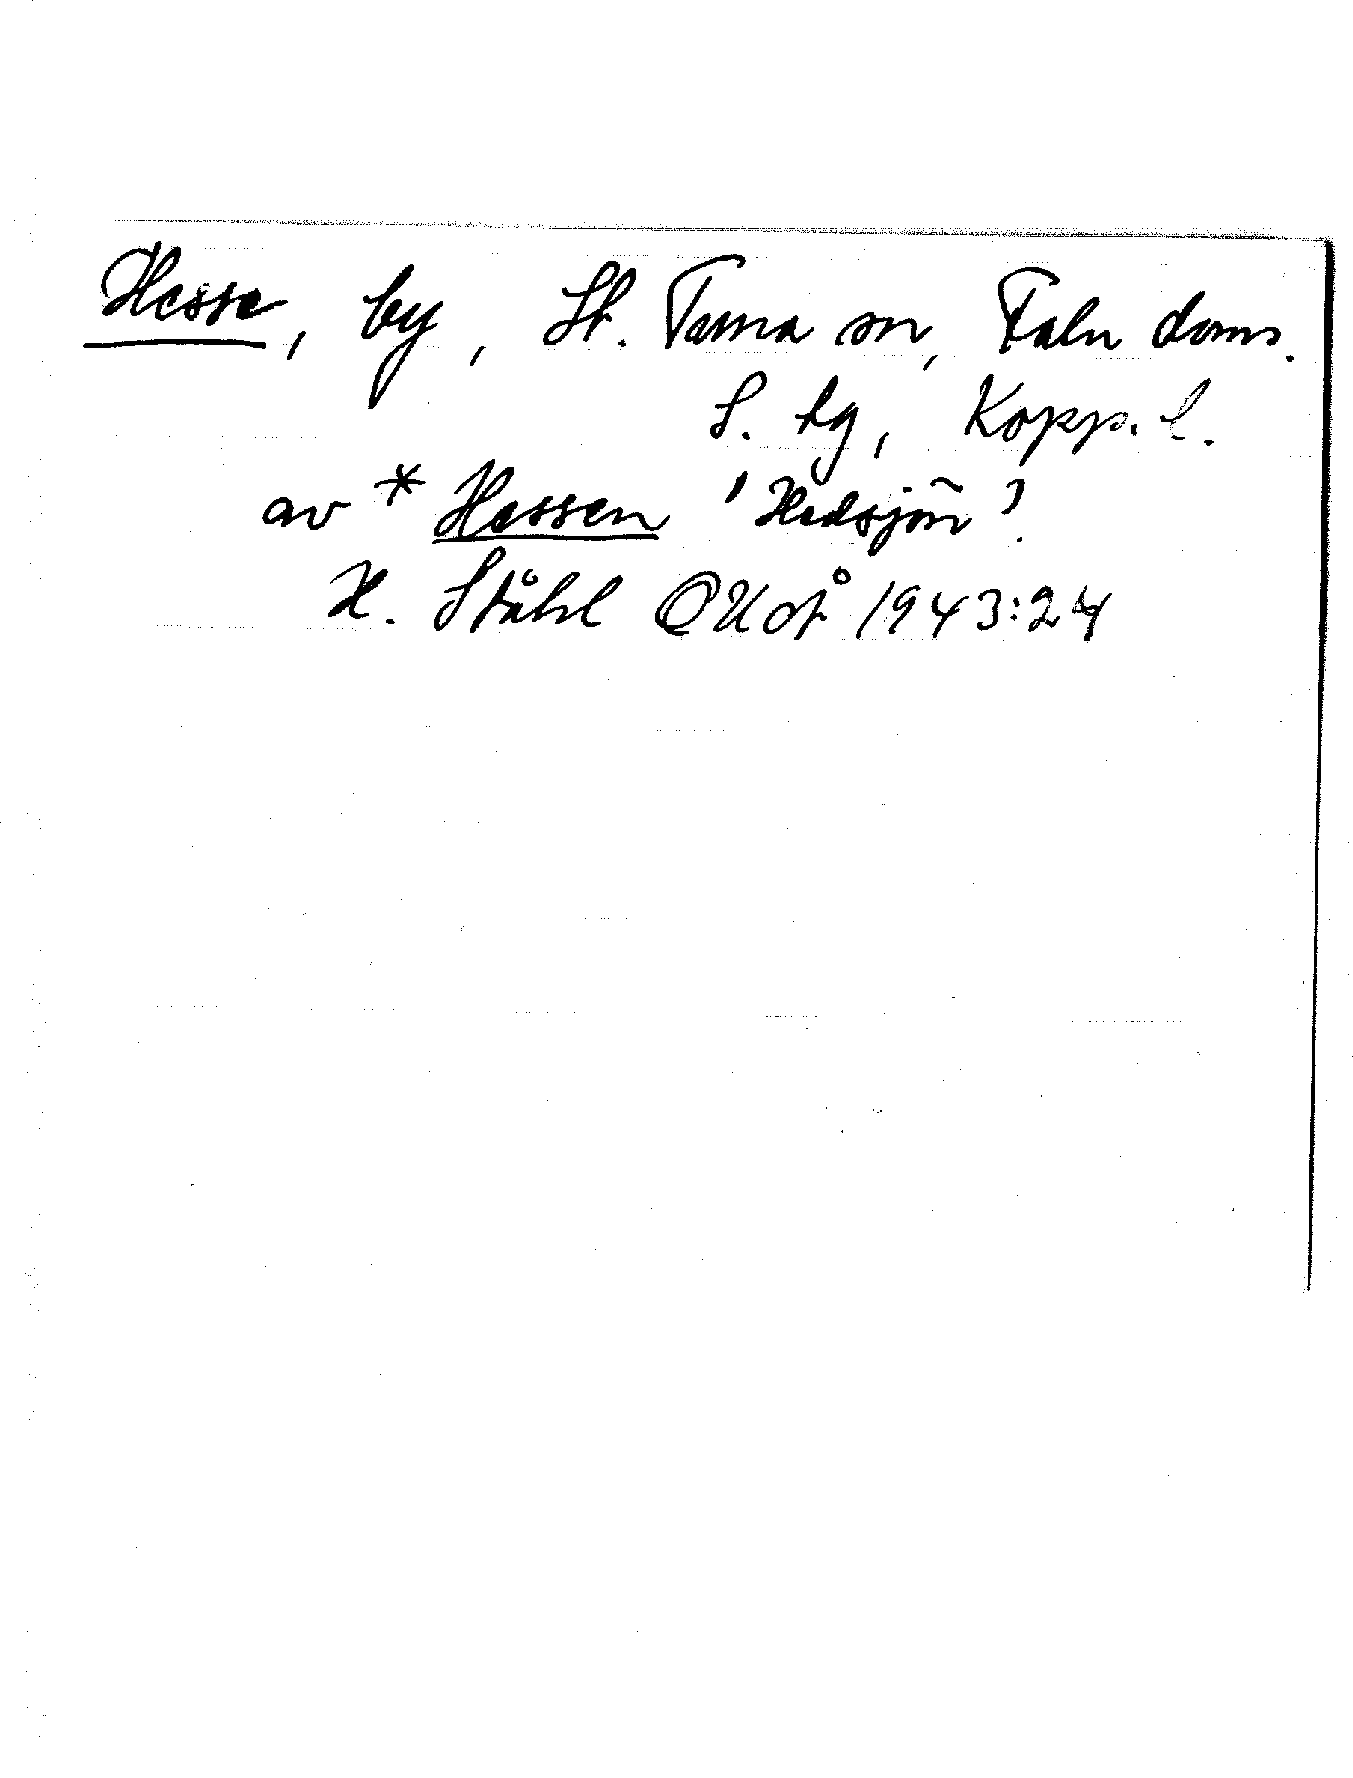 Hesse, by, St. Tuna sn, Falu doms.
S. tg, Kopp. l.
av *Hessen 'Hedsjön'.
H. Ståhl OUÅ 1943:24